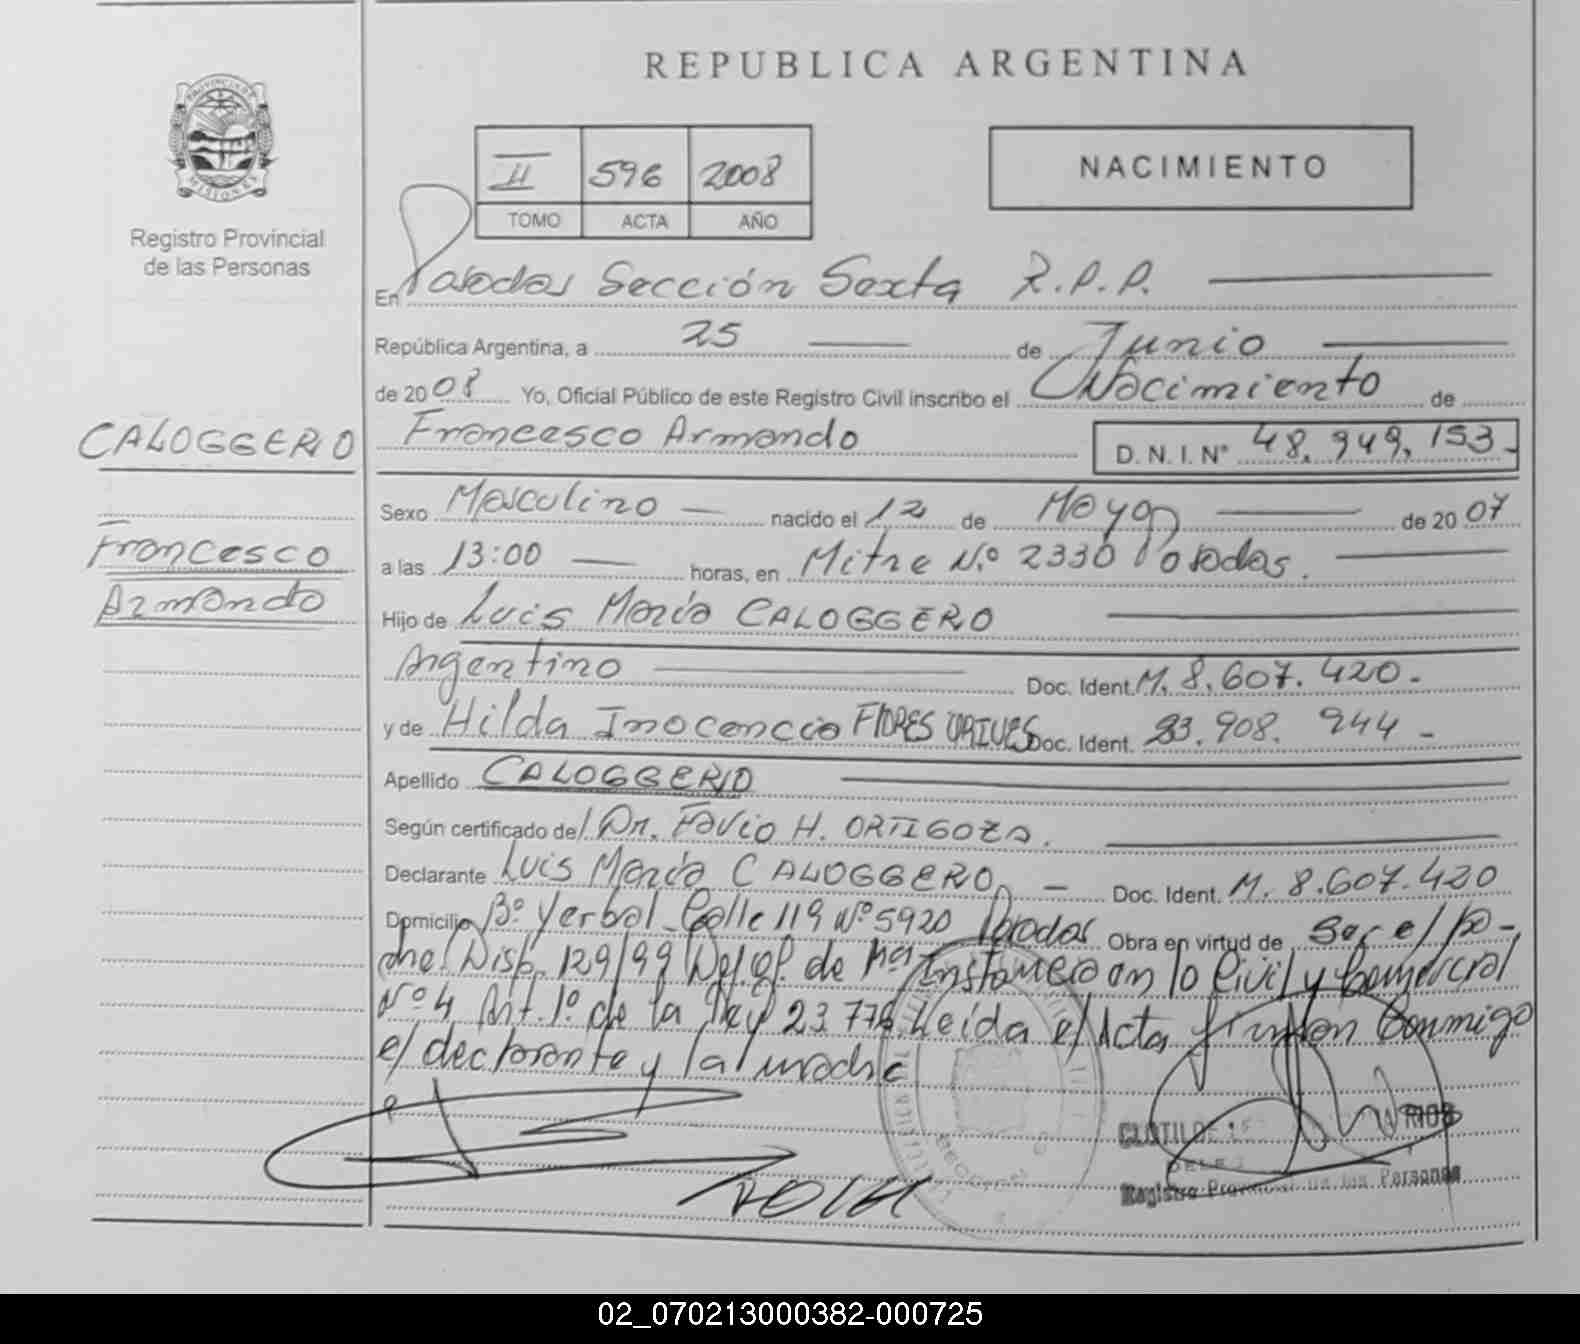 REPUBLICA ARGENTINA
PROVINCIA DE MISIONES
Registro Provincial
de las Personas
II 596 2008
TOMO ACTA AÑO
NACIMIENTO
En Posadas Sección Sexta R.P.P.
República Argentina, a 25 de Junio
de 2008 Yo, Oficial Público de este Registro Civil inscribo el Nacimiento de
CALOGGERO
Francesco Armando D. N. I. N° 48.949.153-
Sexo Masculino nacido el 12 de Mayo de 2007
Francesco
Armando
a las 13:00 horas, en Mitre N.º 2330 Posadas.
Hijo de Luis María CALOGGERO
Argentino Doc. Ident. M. 8.607.420.-
y de Hilda Inocencia FLORES URIVES Doc. Ident. 93.908.944-
Apellido CALOGGERO
Según certificado del Dr. Favio H. ORTIGOZA.
Declarante Luis María CALOGGERO - Doc. Ident. M. 8.607.420
Domicilio Bº Yerbal Calle 119 Nº 5920 Posadas Obra en virtud de Ser el pa-
dre. Disp. 129/99 de 1ª Instancia en lo Civil y Comercial
Nº 4 Art. 1º de la Ley 23.776. Leída el Acta firman Conmigo
el declarante y la madre
CLOTILDE RIOS
Registro Provincial de las Personas
02_070213000382-000725